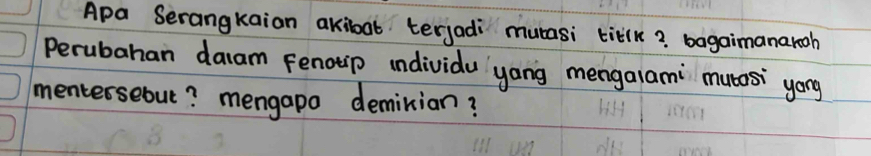 Apa Serangkaian akibat terjadi mutasi titik? bagaimanakah
Perubahan dalam Fenotip individu yang mengalami mutasi yang
mentersebut? mengapa demikian?